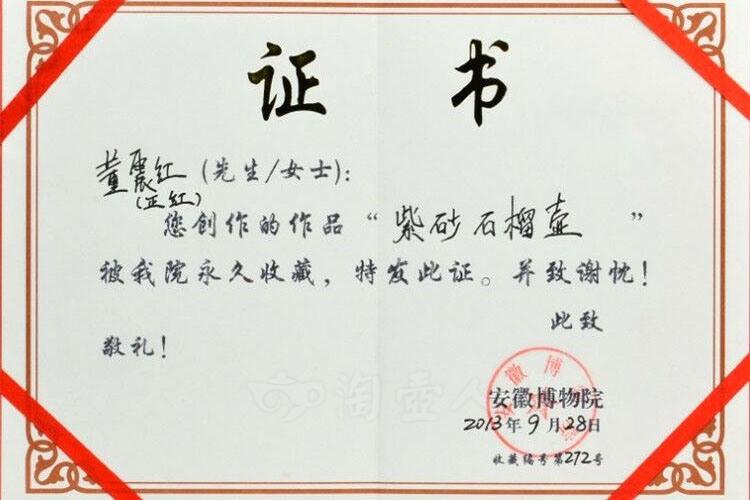 证书
董震红(先生/女士):
(正红)
您创作的作品“紫砂石榴壶”
被我院永久收藏,特发此证。并致谢忱!
此致
敬礼!
安徽博物院
2013年9月28日
收藏编号第272号
安徽博物院
淘壶人